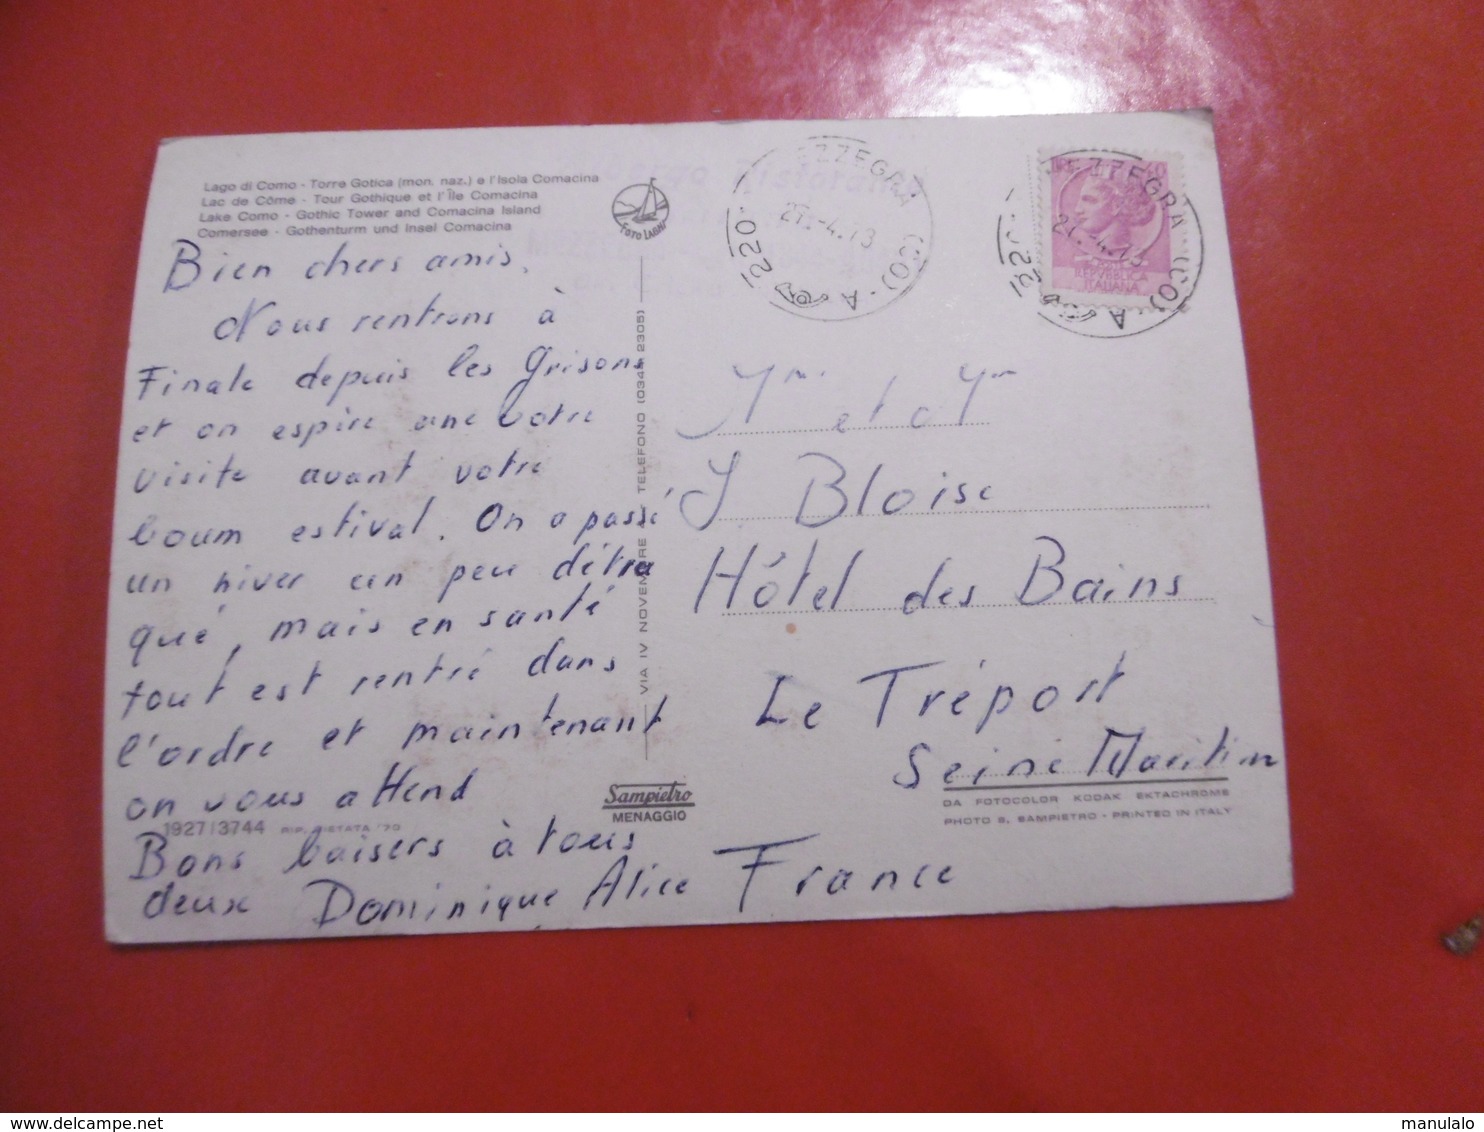 Lago di Como - Torre Gotica (mon. naz.) e l'Isola Comacina
Lac de Côme - Tour Gothique et l'Île Comacina
Lake Como - Gothic Tower and Comacina Island
Comersee - Gothenturm und Insel Comacina
FOTO LARIO
Bien chers amis.
Nous rentrons à
Finale depuis les Grisons
et on espère une votre
visite avant votre
boum estival. On a passé
un hiver un peu détra
qué, mais en santé
tout est rentré dans
l'ordre et maintenant
on vous attend
1927/3744
Bons baisers à tous
deux Dominique Alice
VIA IV NOVEMBRE TELEFONO (0344 2305)
Sampietro
MENAGGIO
EZZEGRA (CO) - A
220
27.-4.73
EZZEGRA (CO) A
27.-4.73
REPVBBLICA
ITALIANA
et
J Bloise
Hôtel des Bains
Le Tréport
Seine Maritim
DA FOTOCOLOR KODAK EKTACHROME
PHOTO B. SAMPIETRO - PRINTED IN ITALY
France
manulalo